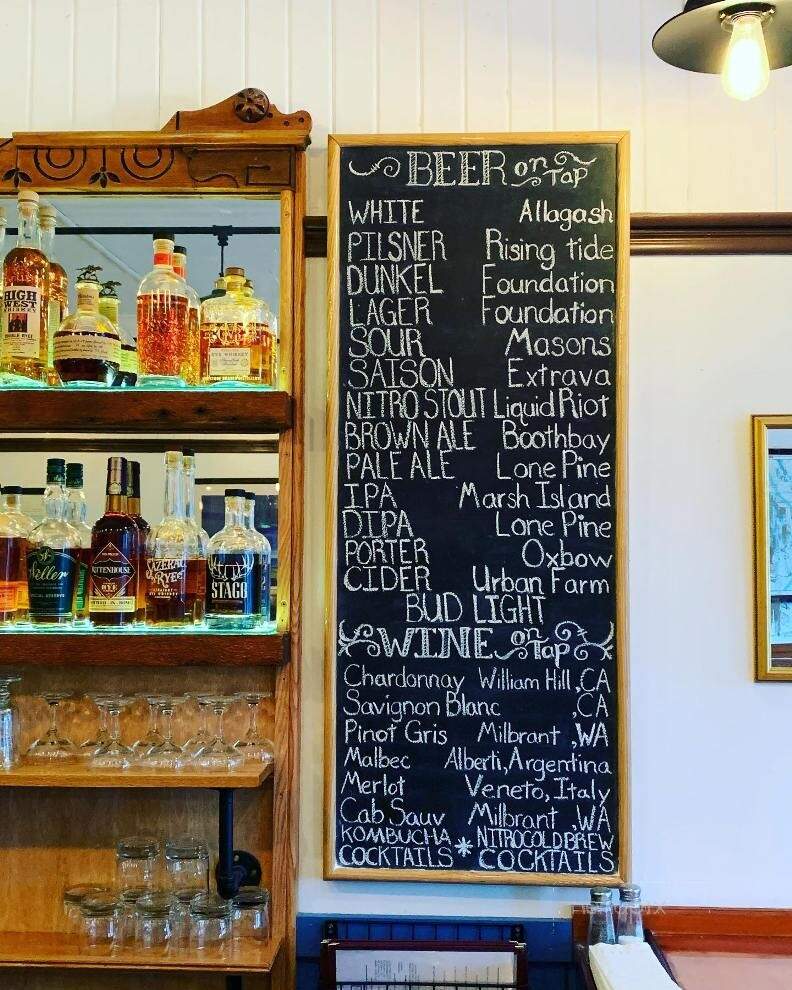 BEER on Tap
WHITE Allagash
PILSNER Rising tide
DUNKEL Foundation
LAGER Foundation
SOUR Masons
SAISON Extrava
NITRO STOUT Liquid Riot
BROWN ALE Boothbay
PALE ALE Lone Pine
IPA Marsh Island
DIPA Lone Pine
PORTER Oxbow
CIDER Urban Farm
BUD LIGHT
WINE on Tap
Chardonnay William Hill, CA
Savignon Blanc , CA
Pinot Gris Milbrant , WA
Malbec Alberti, Argentina
Merlot Veneto, Italy
Cab Sauv Milbrant , WA
KOMBUCHA * NITROCOLD BREW
COCKTAILS COCKTAILS
HIGH
WEST
WHISKEY
DOUBLE RYE
RYE WHISKEY
Weller
SPECIAL RESERVE
RITTENHOUSE
RYE
SAZERAC
RYE
STAGG